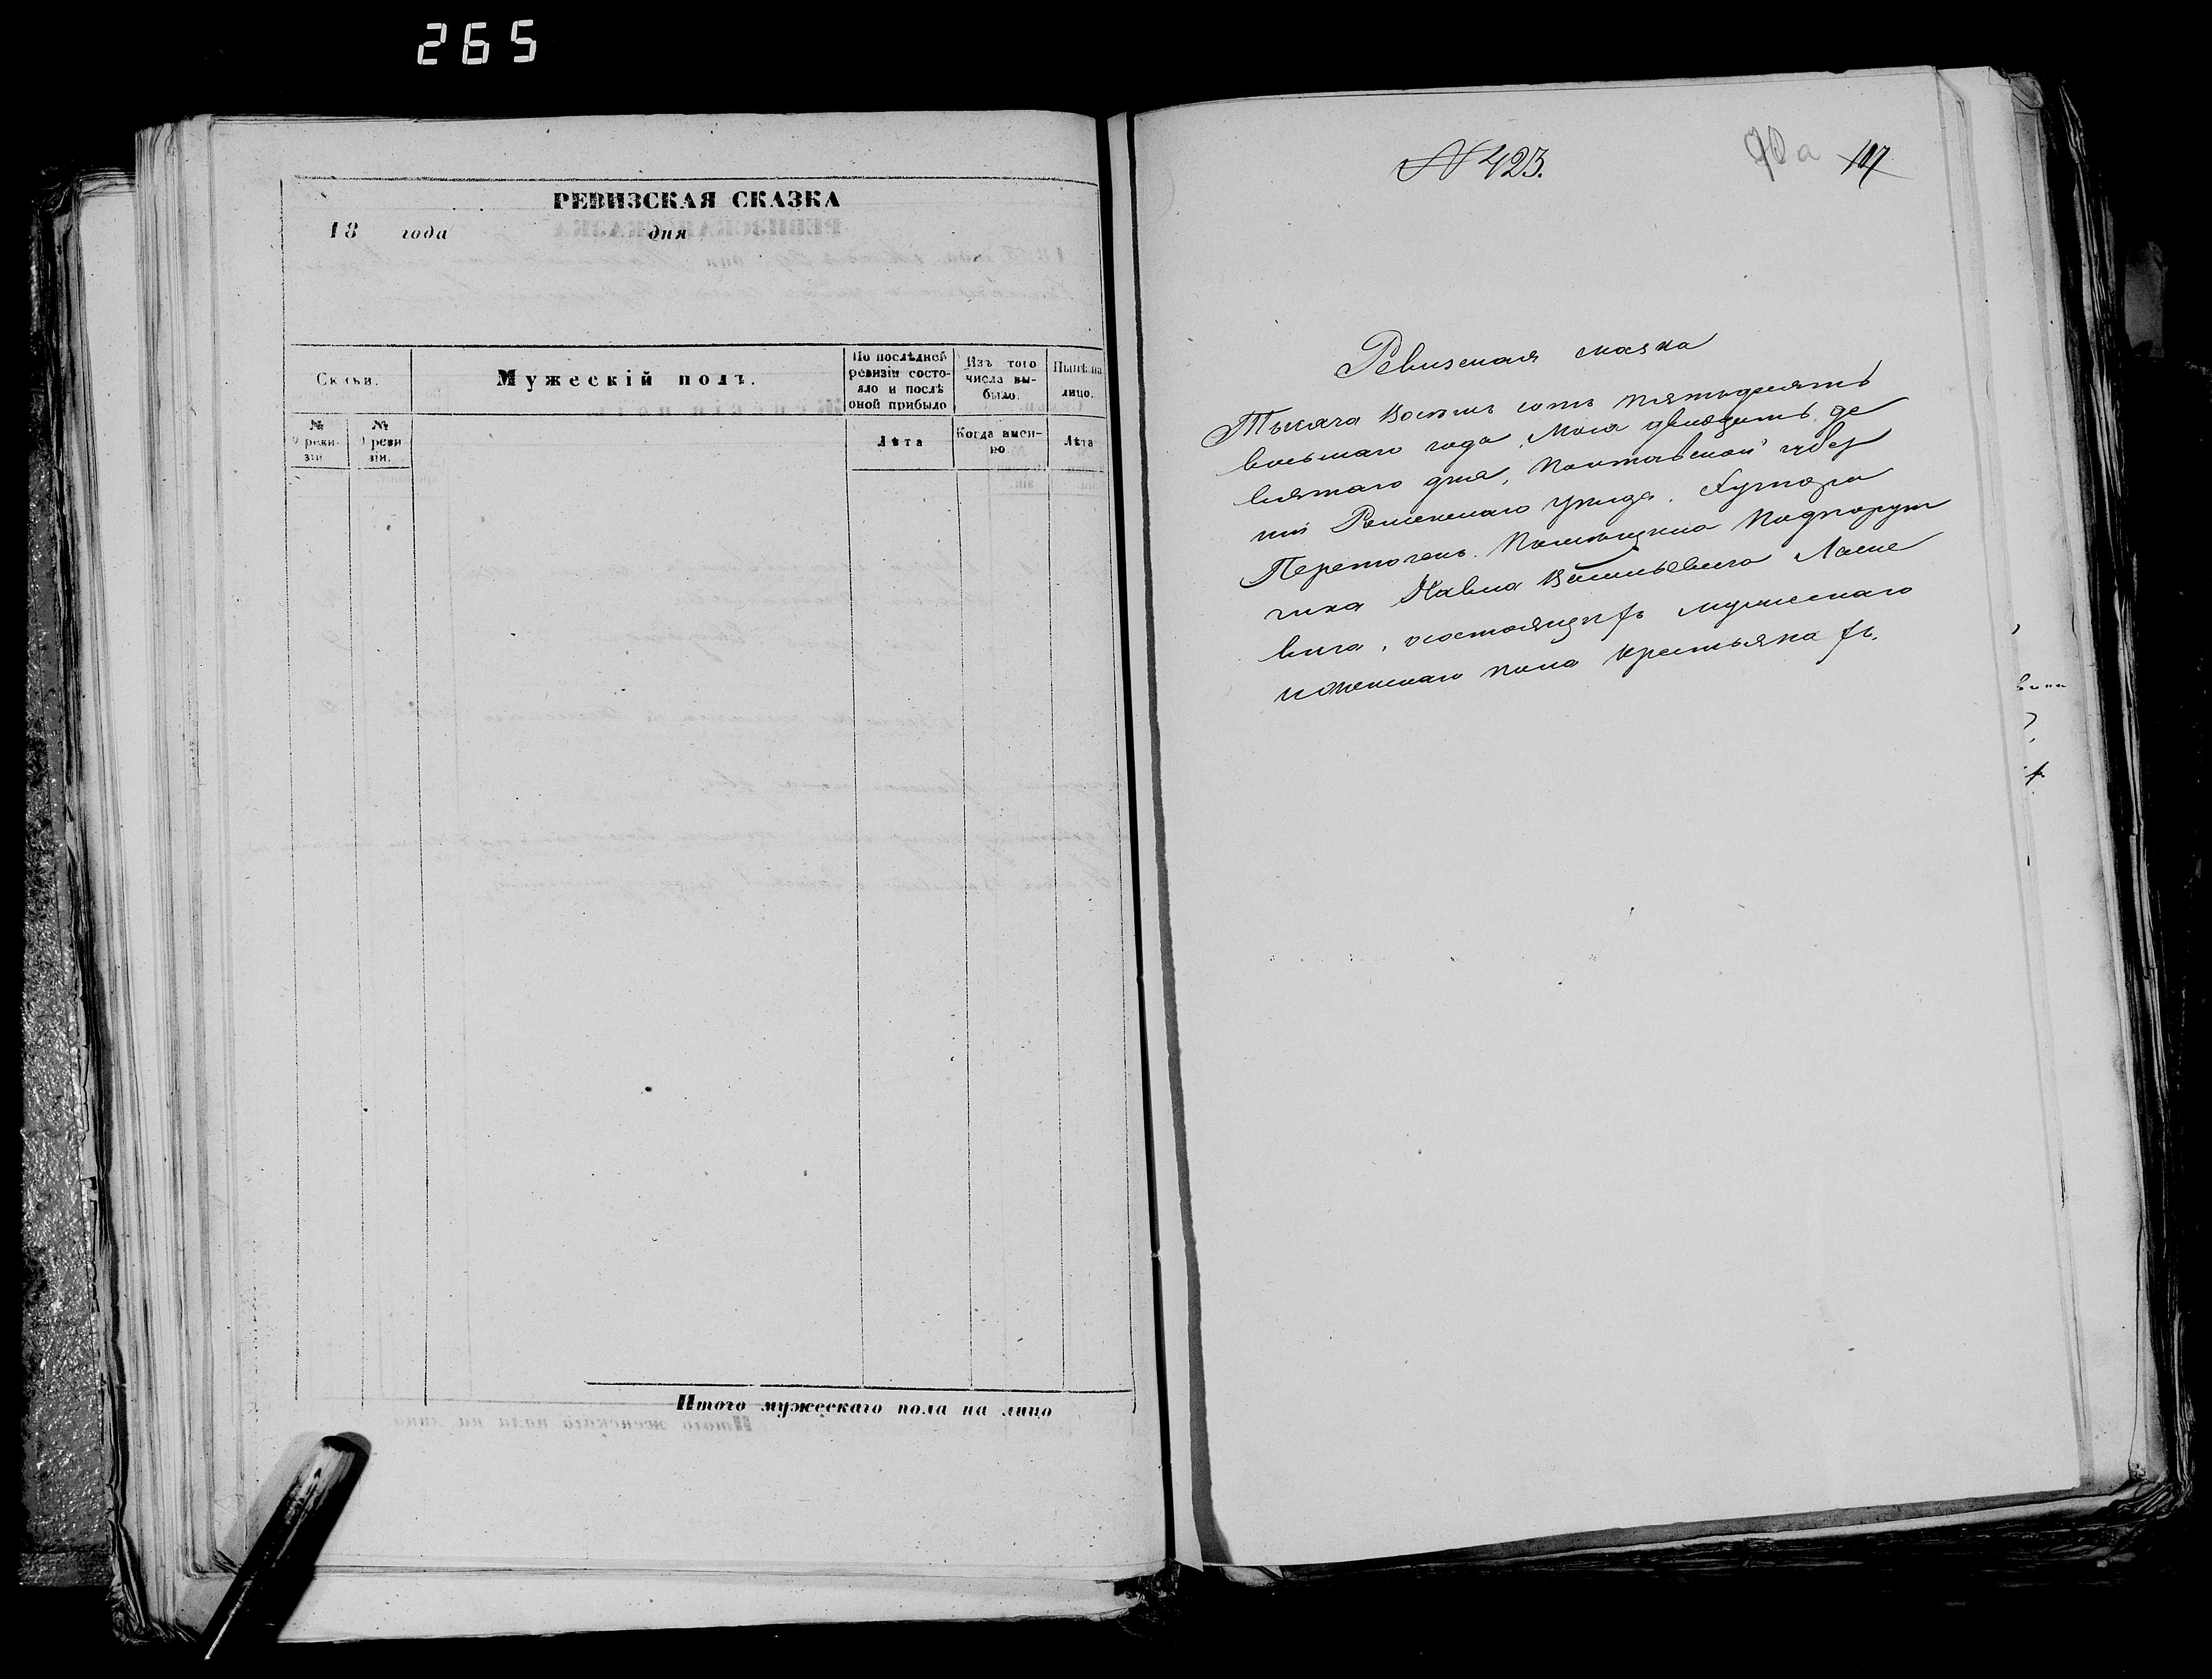 265
РЕВИЗСКАЯ СКАЗКА
18 года дня
Мужескій полъ.
По послѣдней
ревизіи состо-
яло и послѣ
оной прибыло
Изъ того
числа вы-
было.
Нынѣ на
лицо.
№
реви-
зіи
№
реви
зіи.
Лѣта
Когда имен-
но
Лѣта
Итого мужескаго пола на лицо
№ 423.
90а 117
Ревизская сказка
Тысяча Восемь сотъ пятьдесятъ
восьмаго года, Мая двадцать де
вятаго дня, Полтавской губер
ніи Роменскаго уѣзда. Хутора
Переточекъ. Помѣщика Подпоруч
чика Павла Васильевича Ласке
вича, о состоящихъ мужескаго
и женскаго пола крестьянахъ.